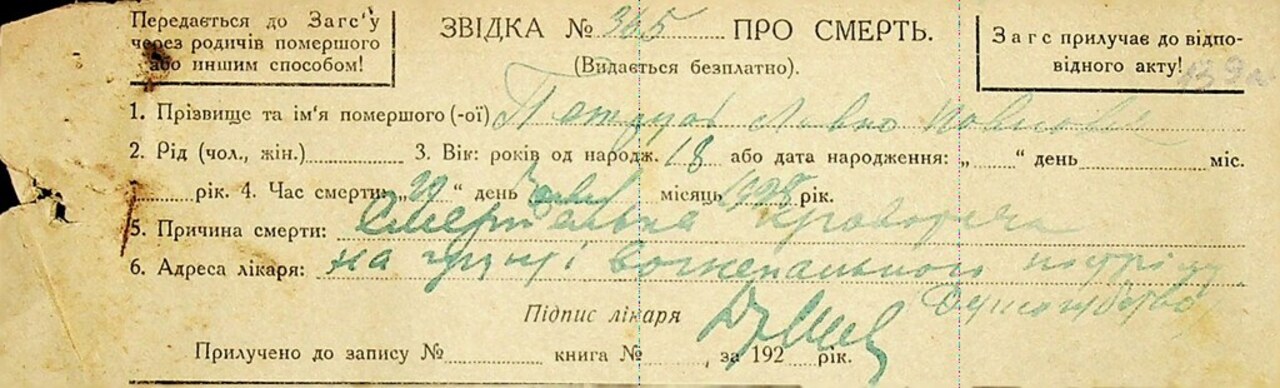 Передається до Загс'у
через родичів помершого
або иншим способом!
ЗВІДКА № 365 ПРО СМЕРТЬ.
(Видається безплатно).
Загс прилучає до відпо-
відного акту!
1. Прізвище та ім'я помершого (-ої)
2. Рід (чол., жін.) 3. Вік: років од народж. 18 або дата народження: „ “ день міс.
рік. 4. Час смерти: „29“ день місяць 1928 рік.
5. Причина смерти: Смертельна кровотеча
6. Адреса лікаря: на грунті вогнепального
Підпис лікаря
Прилучено до запису № книга №, за 192 рік.